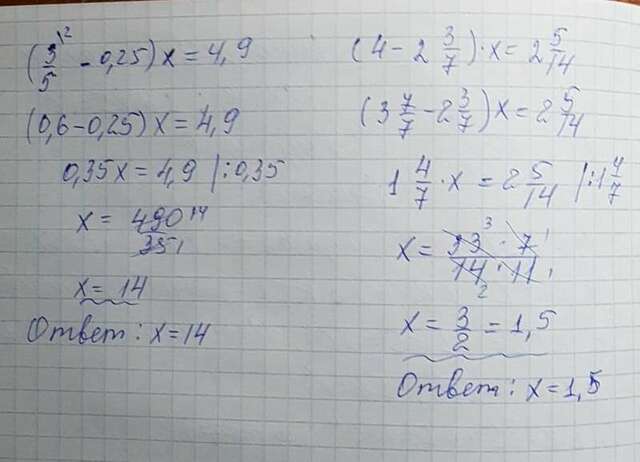 (3/5 ¹² - 0,25) x = 4,9
(0,6 - 0,25) x = 4,9
0,35x = 4,9 | : 0,35
x = 490 ¹⁴ / 35 ₁
x = 14
Ответ: x = 14
(4 - 2 3/7) · x = 2 5/14
(3 7/7 - 2 3/7) x = 2 5/14
1 4/7 · x = 2 5/14 | : 1 4/7
x = 33 ³ · 7 ¹ / 14 ₂ · 11 ₁
x = 3/2 = 1,5
Ответ: x = 1,5